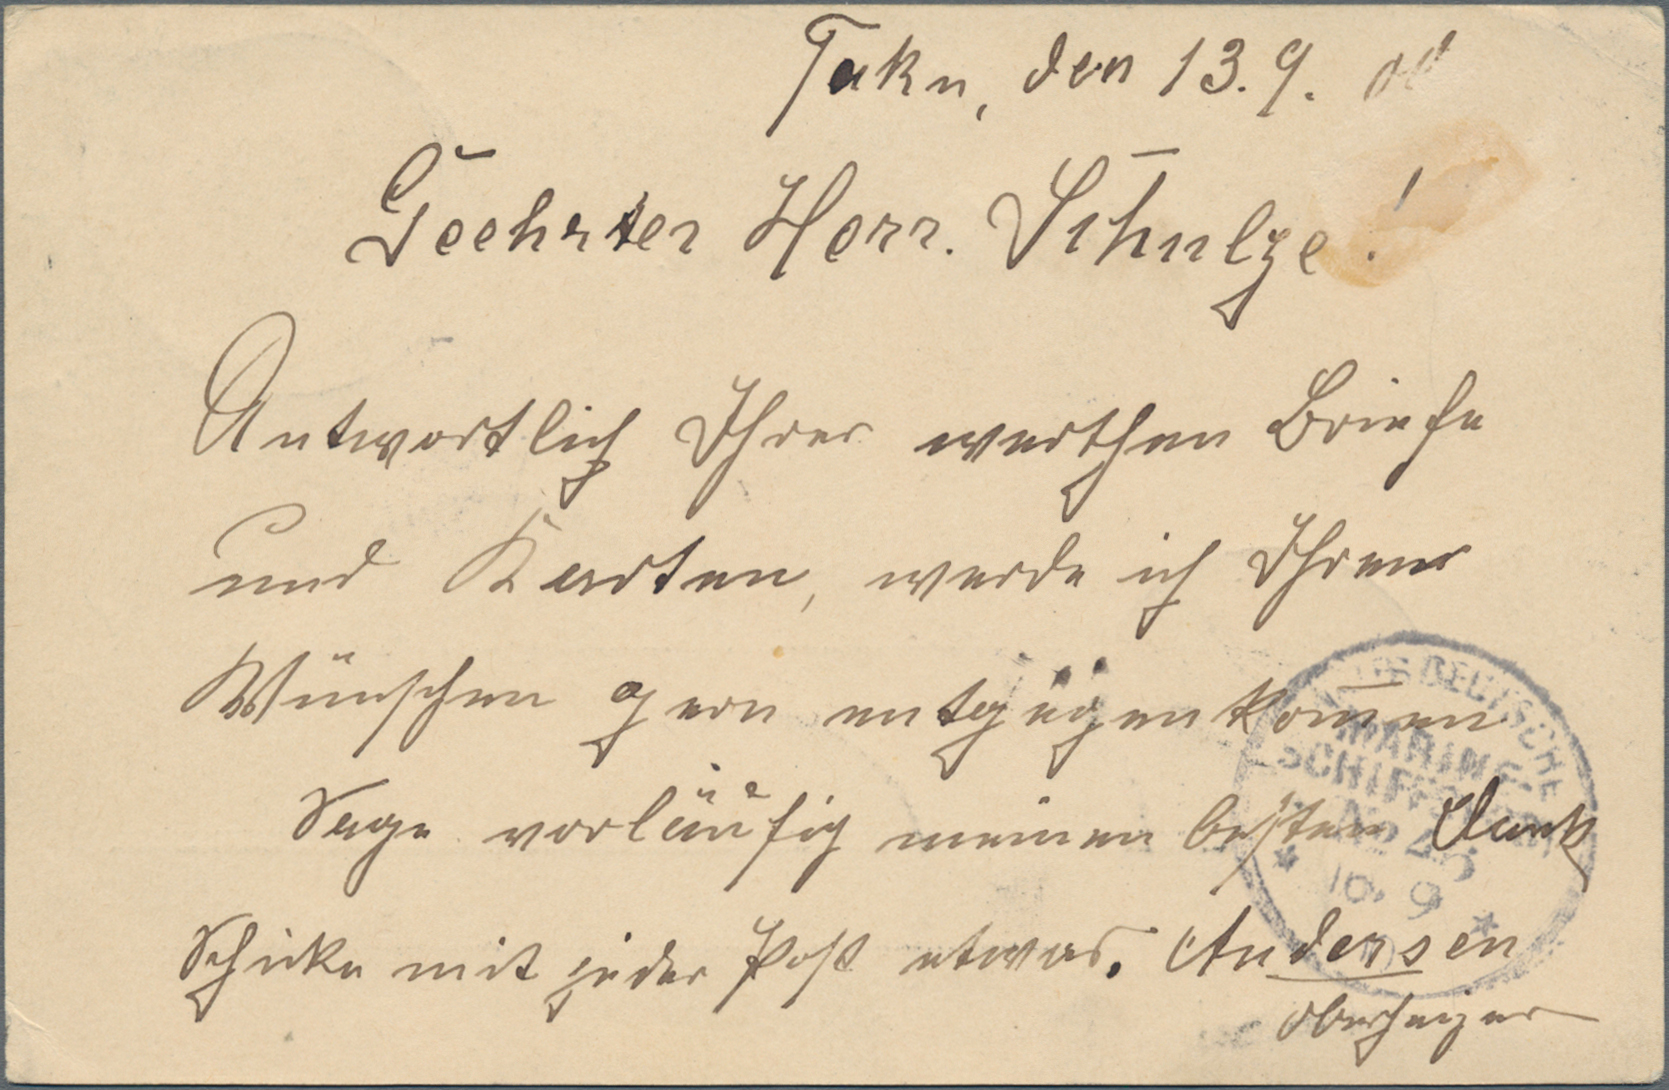 Taku, den 13. 9. 00
Geehrter Herr. Schulze!
Antwortlich Ihrer werthen Briefe
und Karten, werde ich Ihren
Wünschen gern entgegenkom̅en
Sage vorläufig meinen besten Dank
Schicke mit jeder Post etwas. Andersen
Oberheizer
DEUTSCHE
MARINE-
SCHIFFSPOST
No 45
10 9